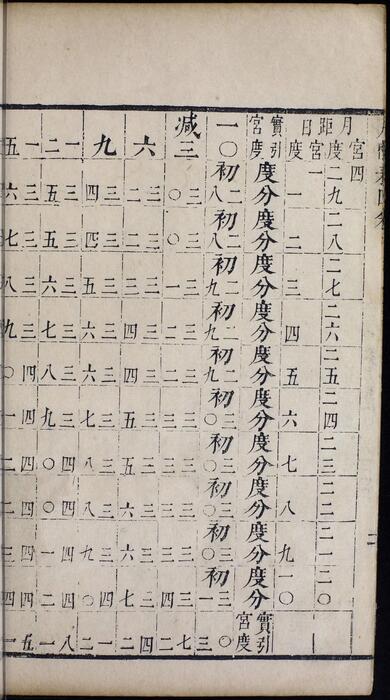 月距日
宮四度 二九 二八 二七 二六 二五 二四 二三 二二 二一 二〇
宮一度 一 二 三 四 五 六 七 八 九 一〇
實引宮度 度分 度分 度分 度分 度分 度分 度分 度分 度分 度分 實引宮度
一〇 初二八 初二八 初二九 初二九 初二九 初三〇 初三〇 初三〇 初三〇 初三一 三〇
減三 三〇 三〇 三一 三二 三二 三三 三三 三三 三三 三四 二七
六 三二 三二 三三 三四 三四 三五 三五 三六 三六 三七 二四
九 三四 三四 三五 三六 三六 三七 三八 三八 三九 四〇 二一
一二 三五 三五 三六 三七 三八 三九 四〇 四〇 四一 四二 一八
一五 三六 三七 三八 三九 四〇 四一 四二 四二 四三 四四 一五